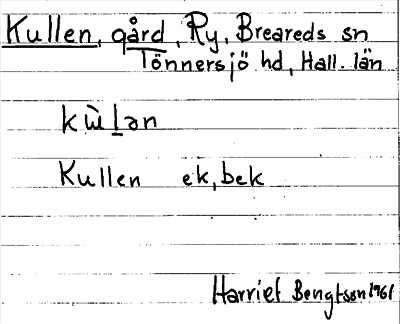 Kullen, gård, Ry, Breareds sn
Tönnersjö hd, Hall. län
kù̈l̲ən
Kullen ek, bek
Harriet Bengtsson 1961